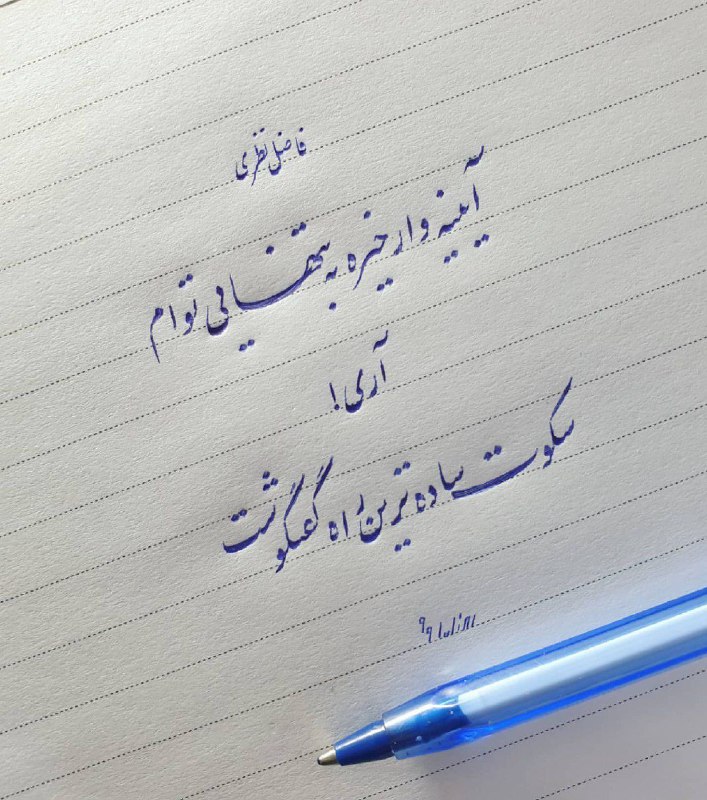 فاضل نظری
آیینه وار خیره به تنهایی توام
آری!
سکوت ساده ترین راه گفتگوست